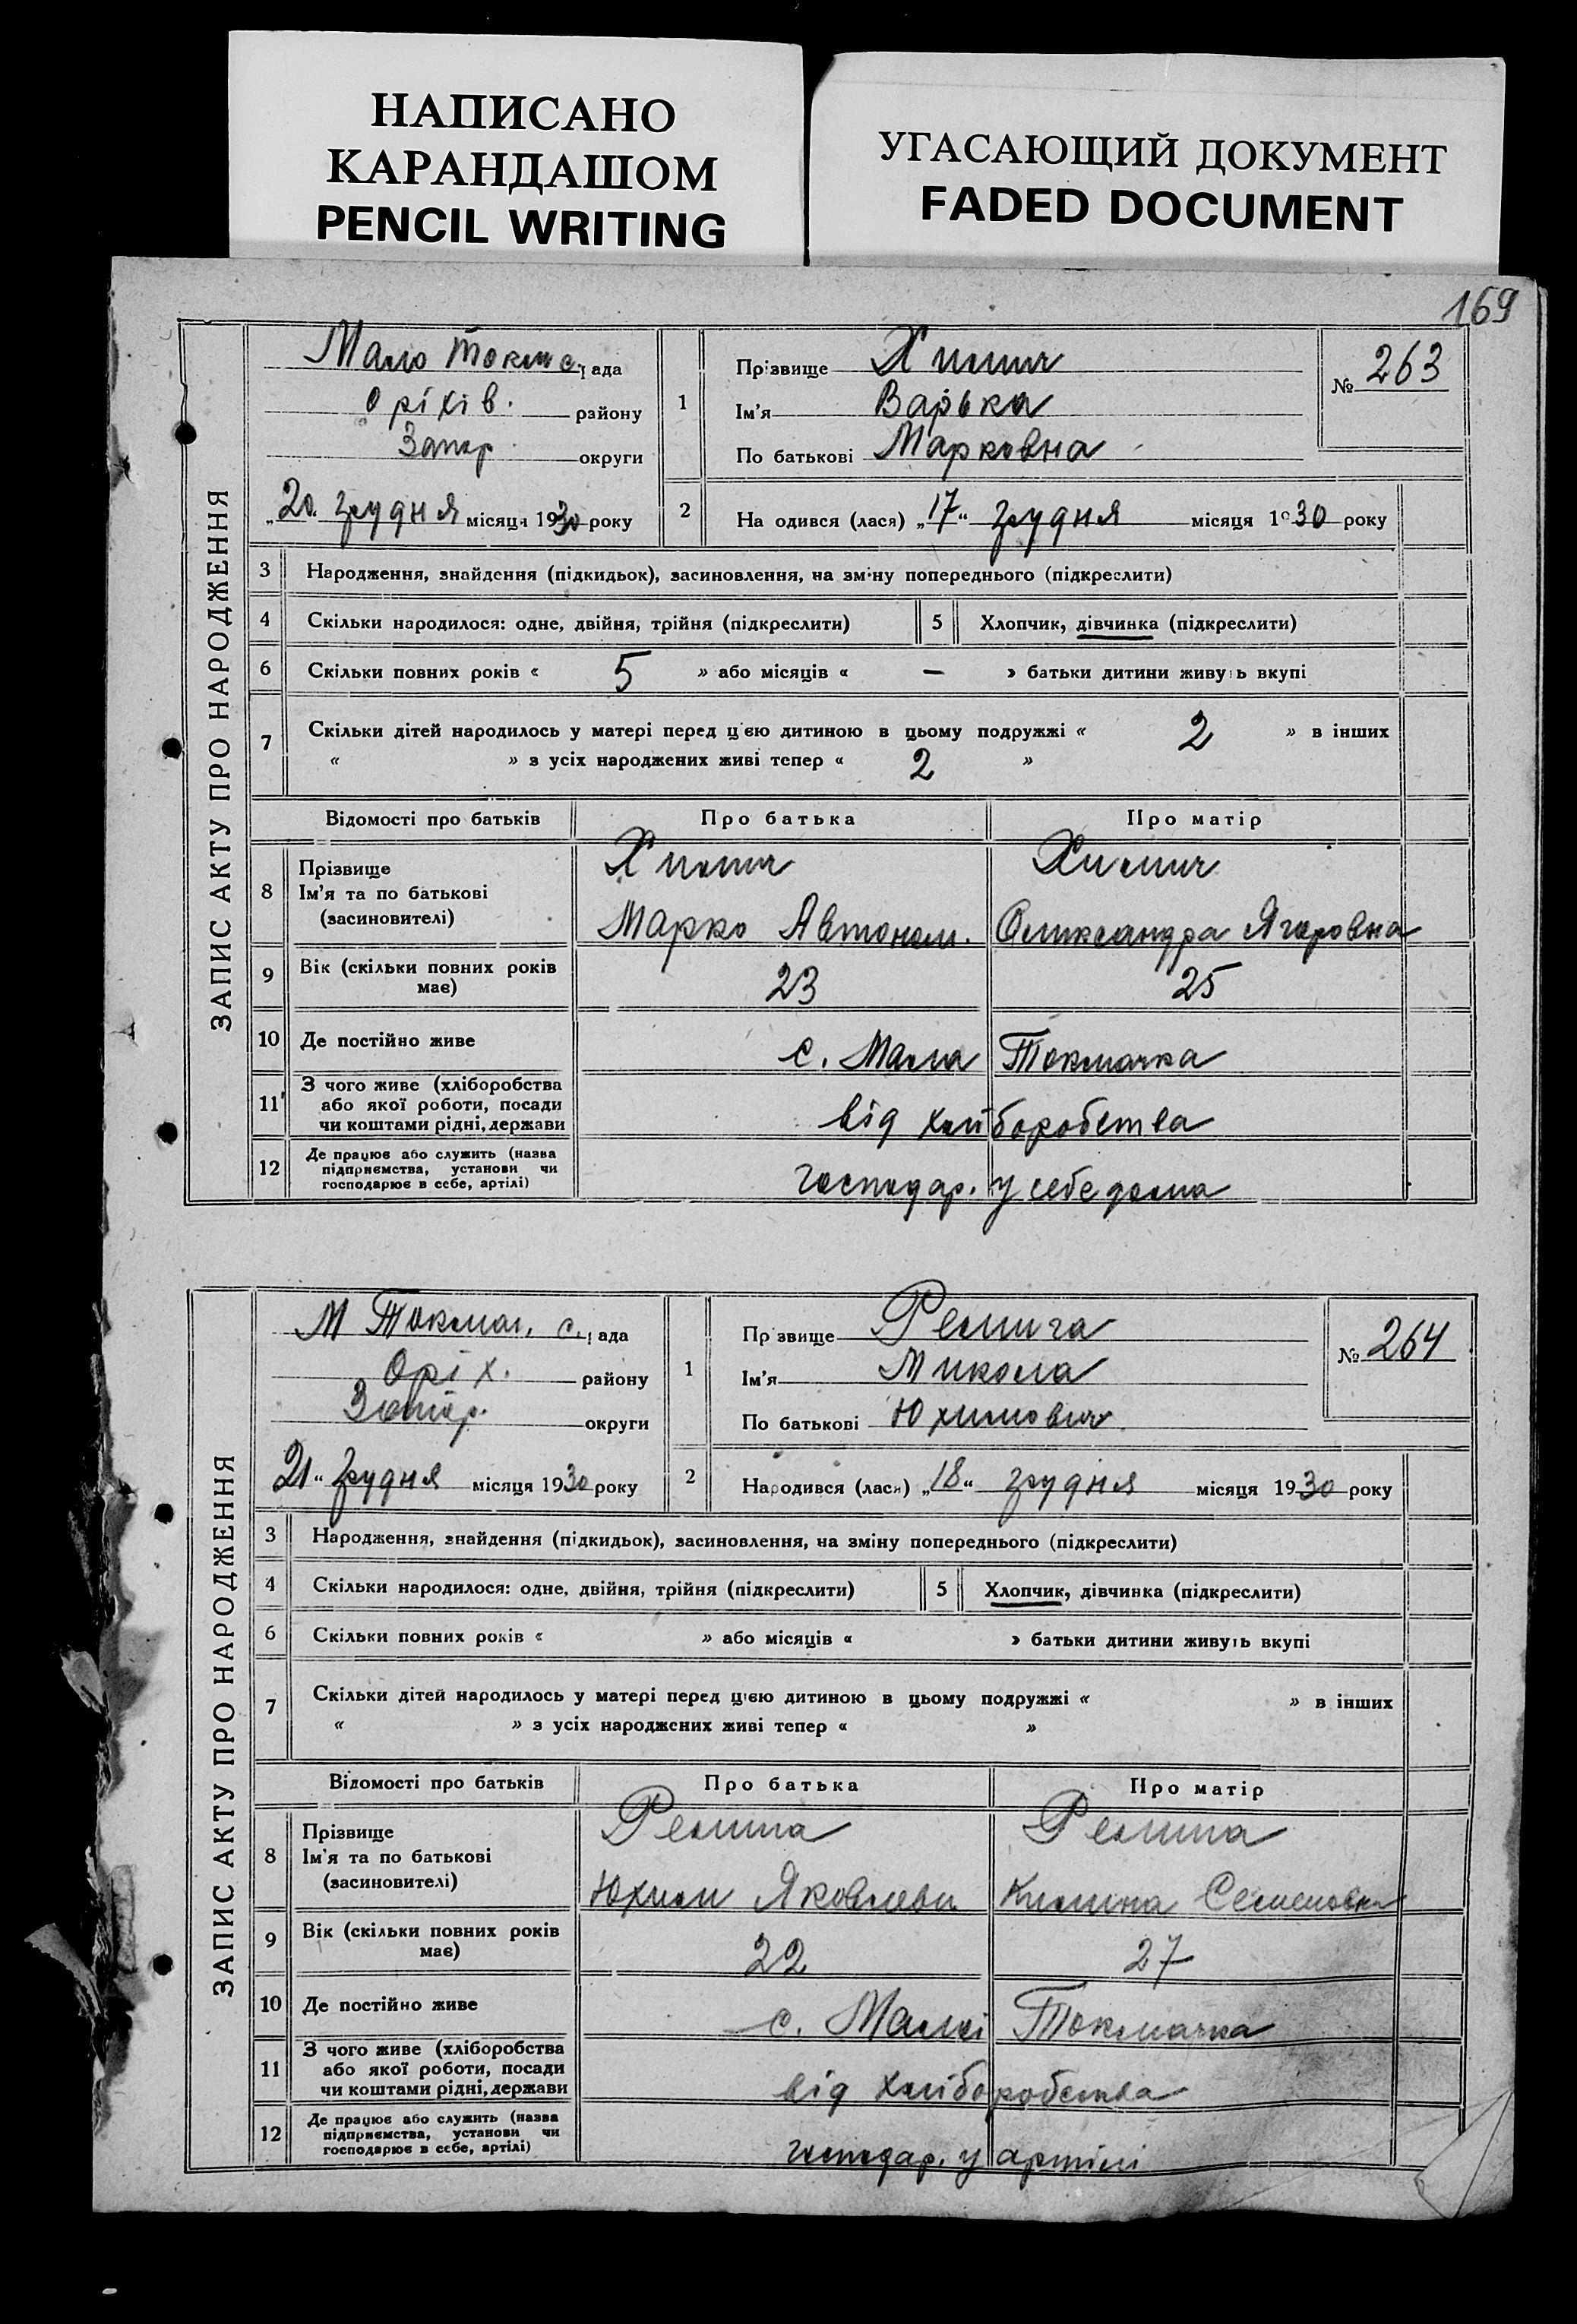 НАПИСАНО
КАРАНДАШОМ
PENCIL WRITING
УГАСАЮЩИЙ ДОКУМЕНТ
FADED DOCUMENT
169
ЗАПИС АКТУ ПРО НАРОДЖЕННЯ
Мало Токм с. рада
Оріхів. району
Запор округи
„20" грудня місяця 1930 року
1 Прізвище Химич
Ім'я Варька
По батькові Марковна
№ 263
2 Народився (лася) „17" грудня місяця 1930 року
3 Народження, знайдення (підкидьок), засиновлення, на зміну попереднього (підкреслити)
4 Скільки народилося: одне, двійня, трійня (підкреслити) 5 Хлопчик, дівчинка (підкреслити)
6 Скільки повних років « 5 » або місяців « — » батьки дитини живуть вкупі
7 Скільки дітей народилось у матері перед цією дитиною в цьому подружжі « 2 » в інших
« » з усіх народжених живі тепер « 2 »
Відомості про батьків Про батька Про матір
8 Прізвище Химич Химич
Ім'я та по батькові
(засиновителі) Марко Автоном. Олександра Ягоровна
9 Вік (скільки повних років
має) 23 25
10 Де постійно живе с. Мала Токмачка
11 З чого живе (хліборобства
або якої роботи, посади
чи коштами рідні, держави від хліборобства
12 Де працює або служить (назва
підприємства, установи чи
господарює в себе, артілі) господар. у себе дома
ЗАПИС АКТУ ПРО НАРОДЖЕННЯ
М Токмач. с. рада
Оріх. району
Запор. округи
21" грудня місяця 1930 року
1 Прізвище
Ім'я Микола
По батькові Юхимович
№ 264
2 Народився (лася) „18" грудня місяця 1930 року
3 Народження, знайдення (підкидьок), засиновлення, на зміну попереднього (підкреслити)
4 Скільки народилося: одне, двійня, трійня (підкреслити) 5 Хлопчик, дівчинка (підкреслити)
6 Скільки повних років « » або місяців « » батьки дитини живуть вкупі
7 Скільки дітей народилось у матері перед цією дитиною в цьому подружжі « » в інших
« » з усіх народжених живі тепер « »
Відомості про батьків Про батька Про матір
8 Прізвище
Ім'я та по батькові
(засиновителі) Юхим Яковлеви Семеновна
9 Вік (скільки повних років
має) 22 27
10 Де постійно живе с. Мала Токмачка
11 З чого живе (хліборобства
або якої роботи, посади
чи коштами рідні, держави від хліборобства
12 Де працює або служить (назва
підприємства, установи чи
господарює в себе, артілі) господар. у артілі